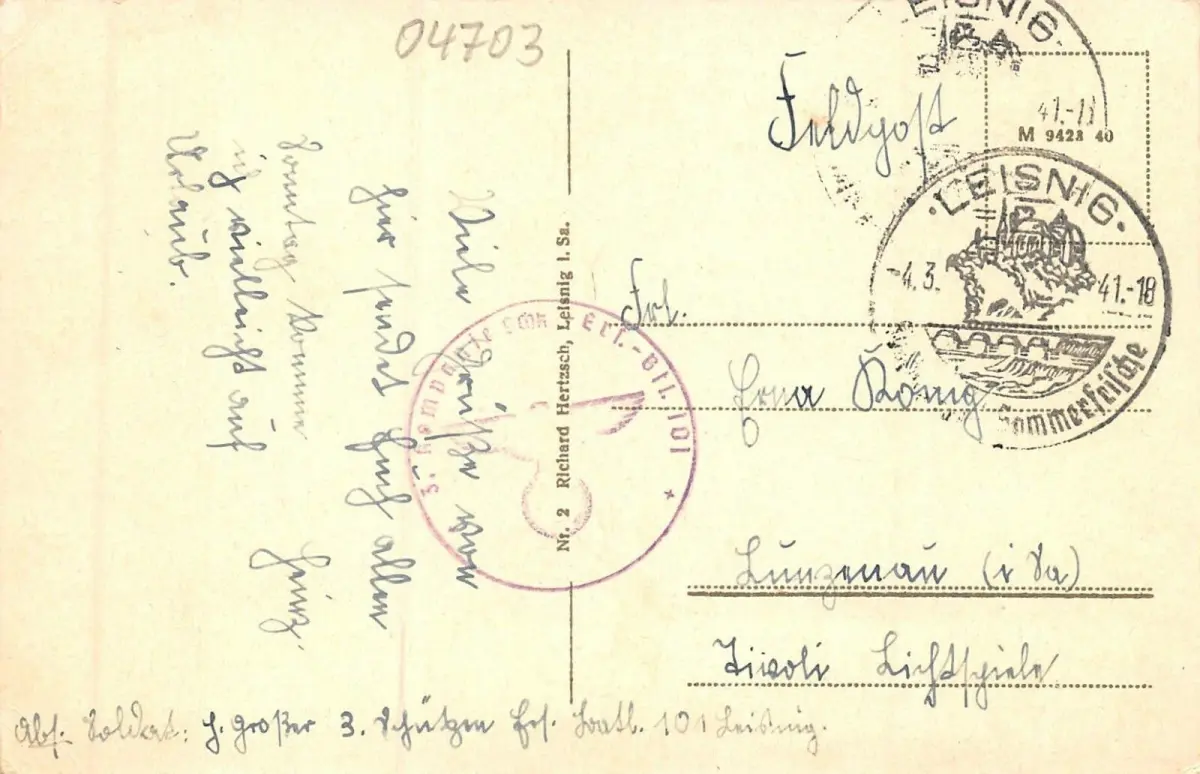 04703
Feldpost
LEISNIG.
41.-18
M 9423 40
·LEISNIG·
-4.3. 41.-18
Sommerfrische
Frl.
Erna König
Lunzenau (i Sa)
Tivoli Lichtspiele
Viele Grüße von
hier sendet Euch allen
Heinz.
Sonntag komme
ich vielleicht auf
Urlaub.
Nr. 2 Richard Hertzsch, Leisnig i. Sa.
3. Kompanie Schtz. Ers.-Btl. 101
Abs. Soldat: H. Großer 3. Schützen Ers. Batl. 101 Leisnig.